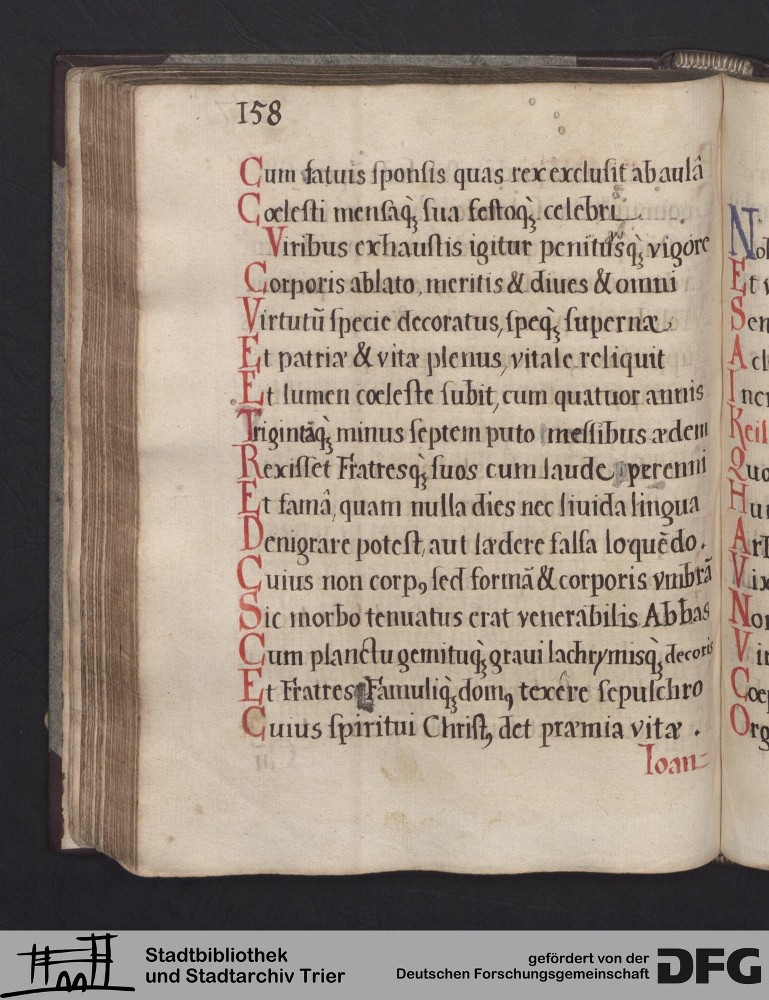 158
Cum fatuis ſponſis quas rex excluſit ab aulâ
Cœleſti menſaq́ʒ ſua feſtoq́ʒ celebri
Viribus exhauſtis igitur penitusq́ʒ vigore
Corporis ablato, meritis & diues & omni
Virtutū ſpecie decoratus, ſpeq́ʒ ſupernæ
Et patriæ & vitæ plenus, vitale reliquit
Et lumen cœleſte ſubit, cum quatuor annis
Trigintaq́ʒ minus ſeptem puto meſſibus ædem
Rexiſſet Fratresq́ʒ ſuos cum laude perenni
Et famâ, quam nulla dies nec liuida lingua
Denigrare poteſt, aut lædere falſa loquēdo.
Cuius non corpꝰ ſed formā & corporis vmbrā
Sic morbo tenuatus erat venerabilis Abbas
Cum planctu gemituq́ʒ graui lachrymisq́ʒ decoris
Et Fratres Famuliq́ʒ domꝰ texére ſepulchro
Cuius ſpiritui Chriſtꝰ det præmia vitæ .
Ioan=
N
Et
Sen
A
I
Q
H
A
V
N
V
C
O
Stadtbibliothek
und Stadtarchiv Trier
gefördert von der
Deutschen Forschungsgemeinschaft
DFG